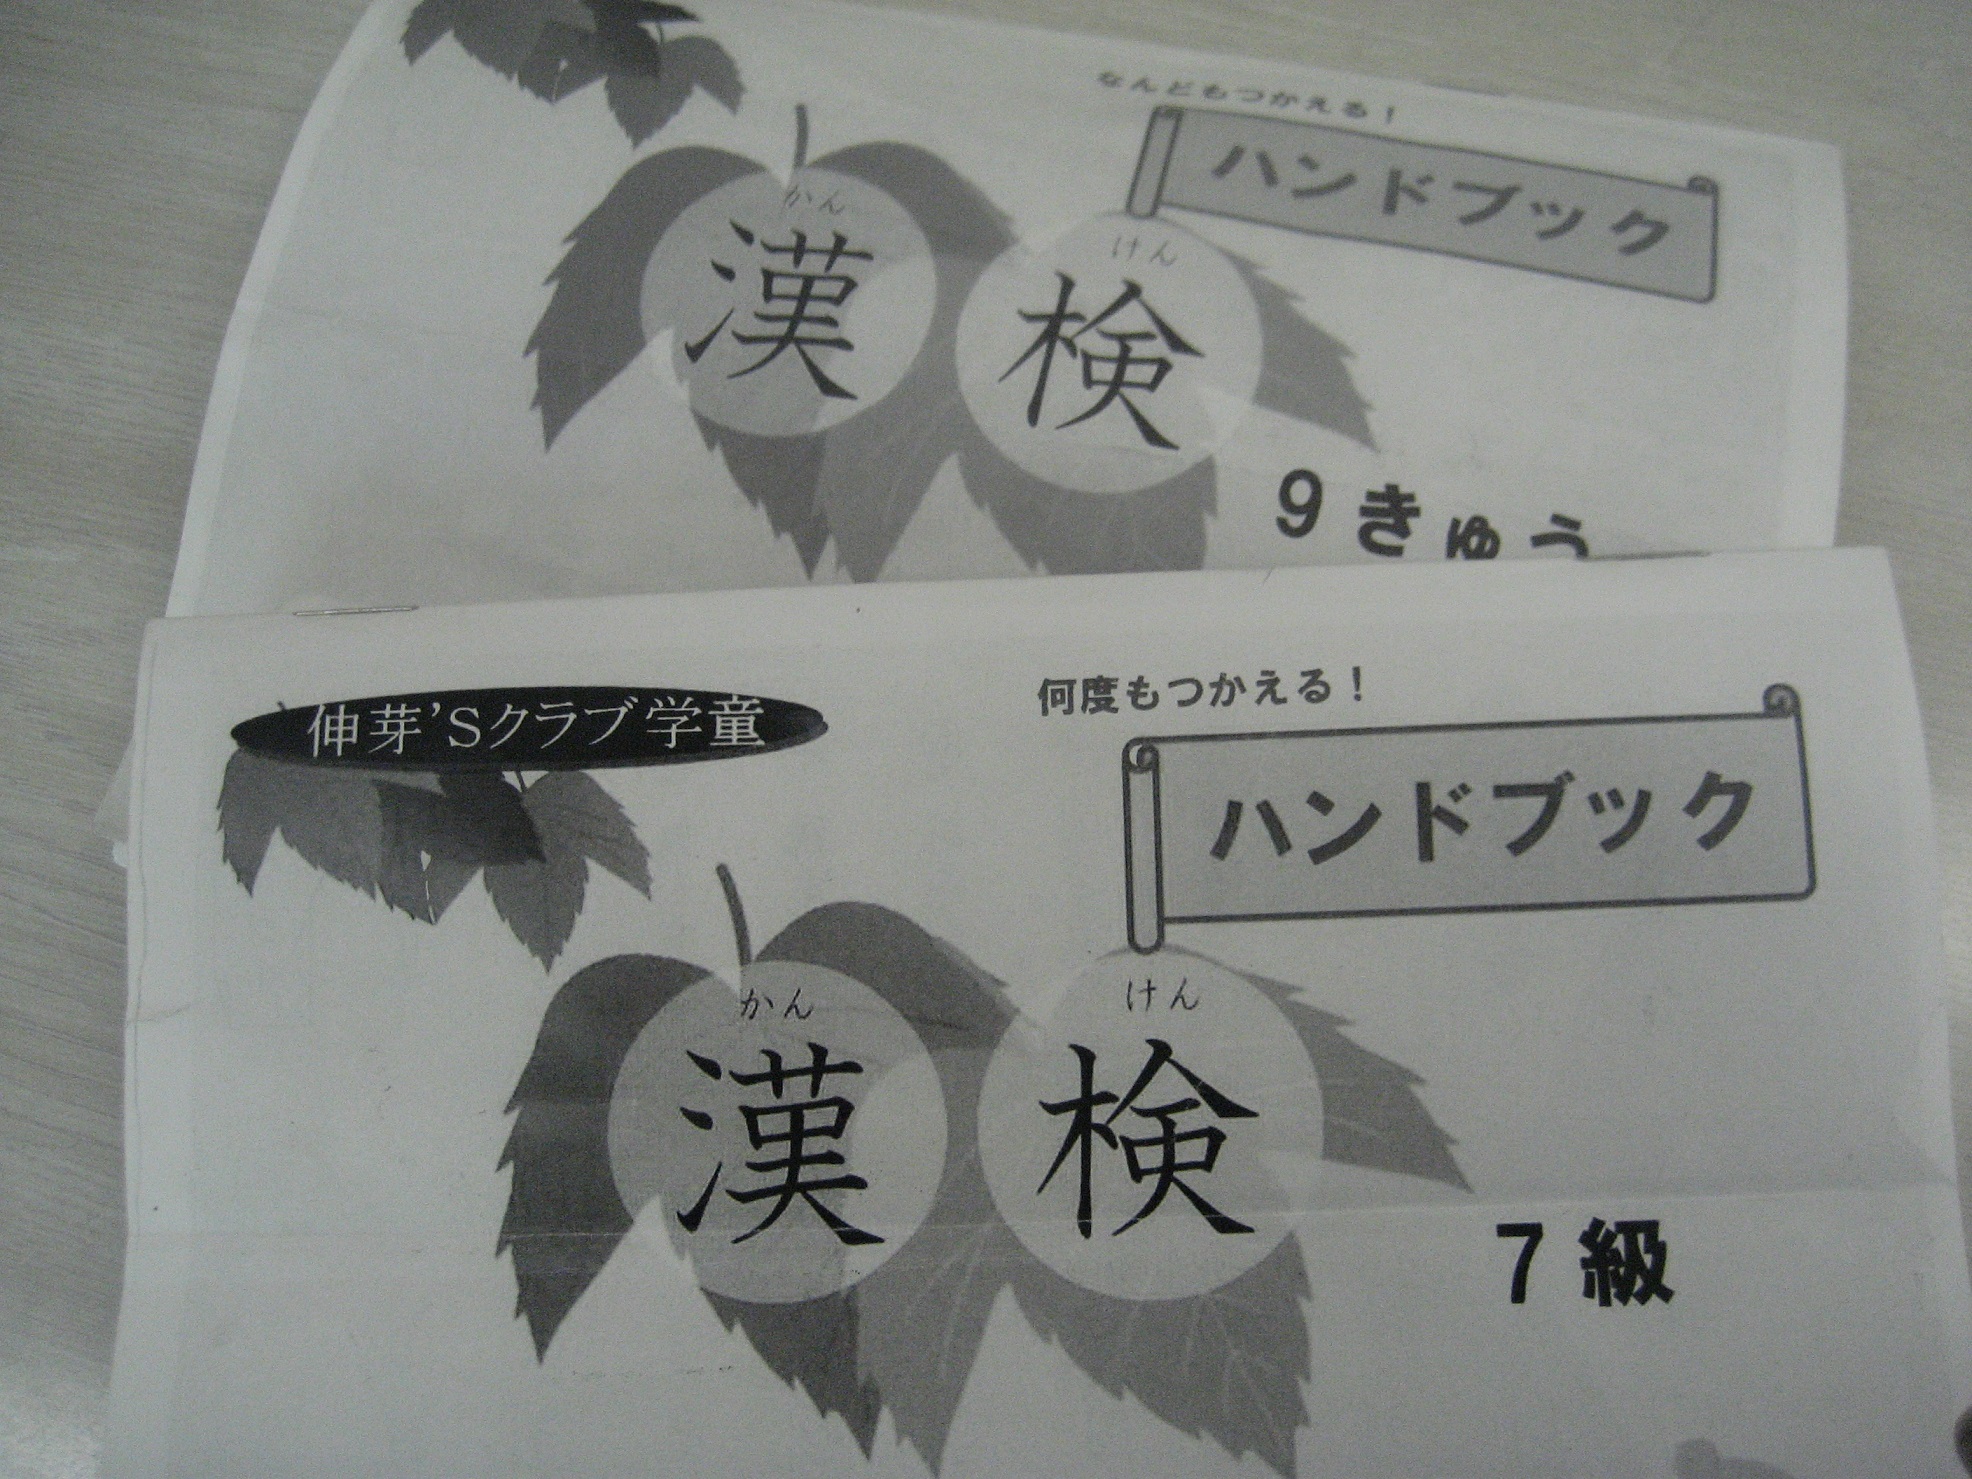 なんどもつかえる!
ハンドブック
かん けん
漢検
9きゅう
伸芽'Sクラブ学童
何度もつかえる!
ハンドブック
かん けん
漢検
7級